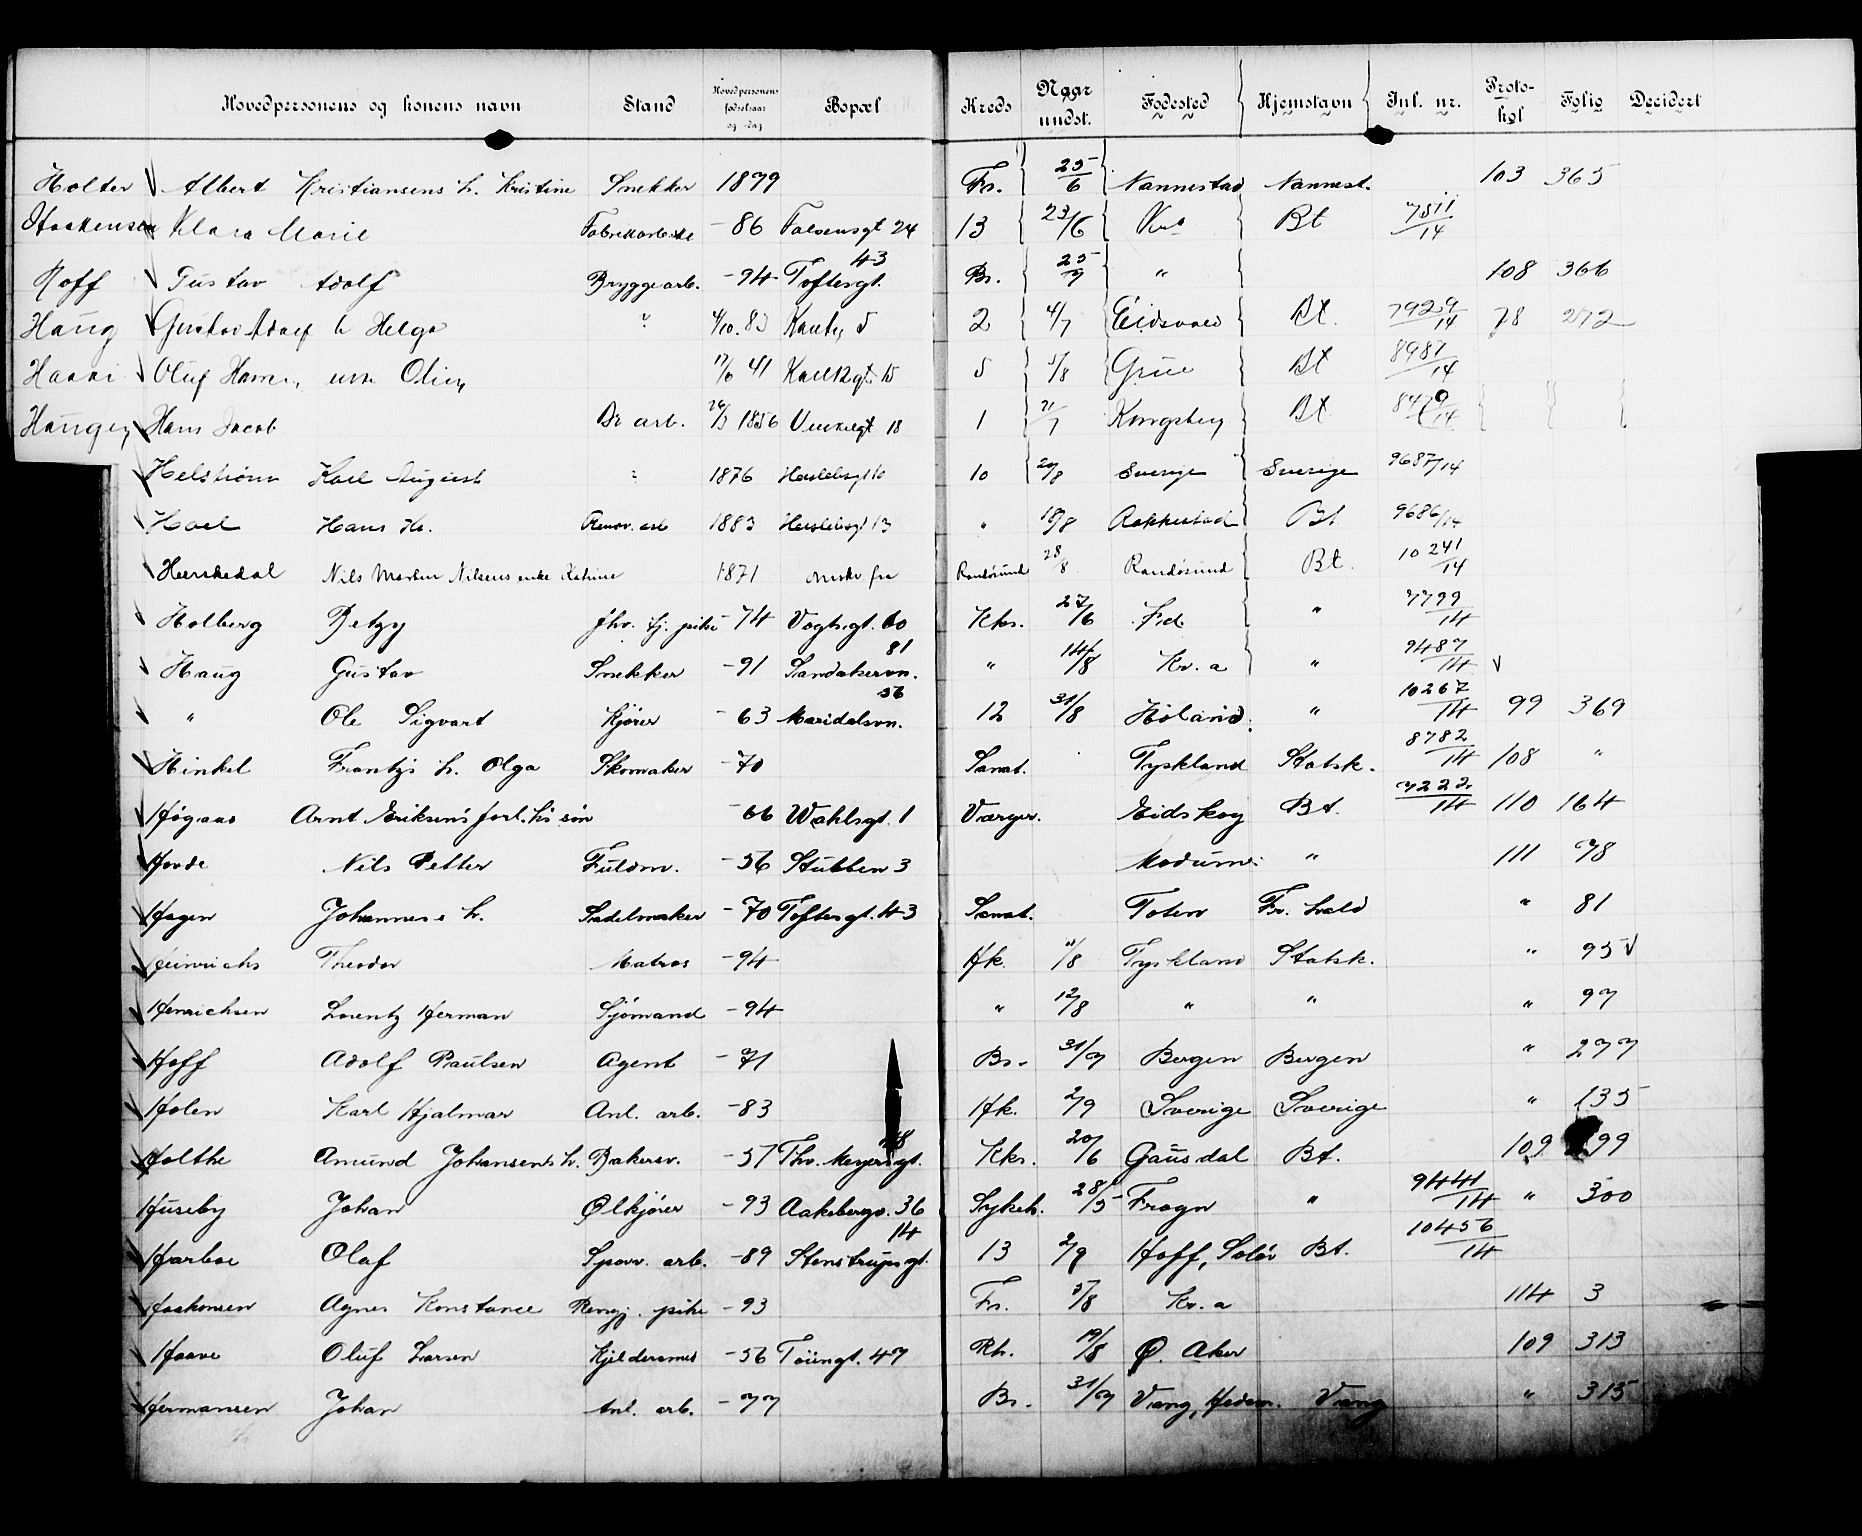 Hovedpersonens og konens navn Stand Hovedpersonens fødselsaar og -dag Bopæl Kreds Naar undst. Fødested Hjemstavn Inl. nr. Protokol Folio Decidert
Holter Albert Kristiansens h. Kristine Snekker 1879 Fr. 25/6 Nannestad Nannest. 103 365
Haakensen Klara Marie Fabrikarbske -86 Falsensgt 24 13 23/6 Kra Bt 7511/14
Hoff Gustav Adolf Bryggearb. -94 Toftesgt. 43 Br. 25/7 " 108 366
Haug Gustav Adolf h Helga " 4/10.83 5 2 4/7 Eidsvold Bt. 7929/14 78 272
Oluf 17/6 41 15 5 5/8 Grue Bt 8987/14
Haugen Hans Jacob Br arb. 1856 18 1 21/7 Kongsberg Bt
Helstrøm Karl August " 1876 Herslebsgt 10 10 20/8 Sverige Sverige 9687/14
Hoel Hans Kr. Renov. arb 1883 Herslebsgt 13 " 18/8 Rakkestad Bt 9686/14
Heerskedal Nils Martin Nilsens enke Katrine 1871 ønske fra Randøsund 28/8 Randøsund Bt. 10241/14
Holberg Betzy fhv. tj. pike -74 Vogtsgt. 60 Kks. 27/6 " 7799/14
Haug Gustav Snekker -91 Sandakervn. 81 " 14/8 Kr.a " 9487/14
" Ole Sigvart Kjører -63 Maridalsvn. 56 12 31/8 Høland. " 10267/14 99 369
Hinkel Frantz's h. Olga Skomaker -70 Sanat. Tyskland Statsk. 8782/14 108 "
Høgaas Arnt Eriksens forl. h's søn -66 Wahlsgt. 1 Værger. Eidskog Bt. 7222/14 110 164
Hovde Nils Petter Fuldm. -56 Stubben 3 Modum. " 111 78
Hagen Johannes's h. Sadelmaker -70 Toftesgt. 43 Sanat. Toten Fr. hald " 81
Heinrichs Theodor Matros -94 Hfk. 11/8 Tyskland Statsk. " 95
Henrichsen Lorentz Herman Sjømand -94 " 12/8 " " " 97
Hoff Adolf Paulsen Agent -71 Br. 31/7 Bergen Bergen " 277
Holen Karl Hjalmar Anl. arb. -83 Hfk. 2/9 Sverige Sverige " 135
Holthe Amund Johansens h. Bakersv. -57 Thv. Meyersgt. Kks. 20/6 Gausdal Bt. 109 299
Huseby Johan Ølkjører -93 Aakebergv. 36 Sykeh. 28/5 Frogn " 9441/14 " 300
Harboe Olaf Sporv. arb. -89 Stenstrupsgt. 14 13 2/9 Hoff, Solør Bt. 10456/14
Haakonsen Agnes Konstance Rengj. pike -93 Fr. 5/8 Kr. a 114 3
Haave Oluf Larsen Kjeldersmed -56 Tøiengt. 47 Rh. 19/8 Ø. Aker 109 313
Hermansen Johan Anl. arb. -77 Br. 31/7 Vang, Hedem. Vang " 315